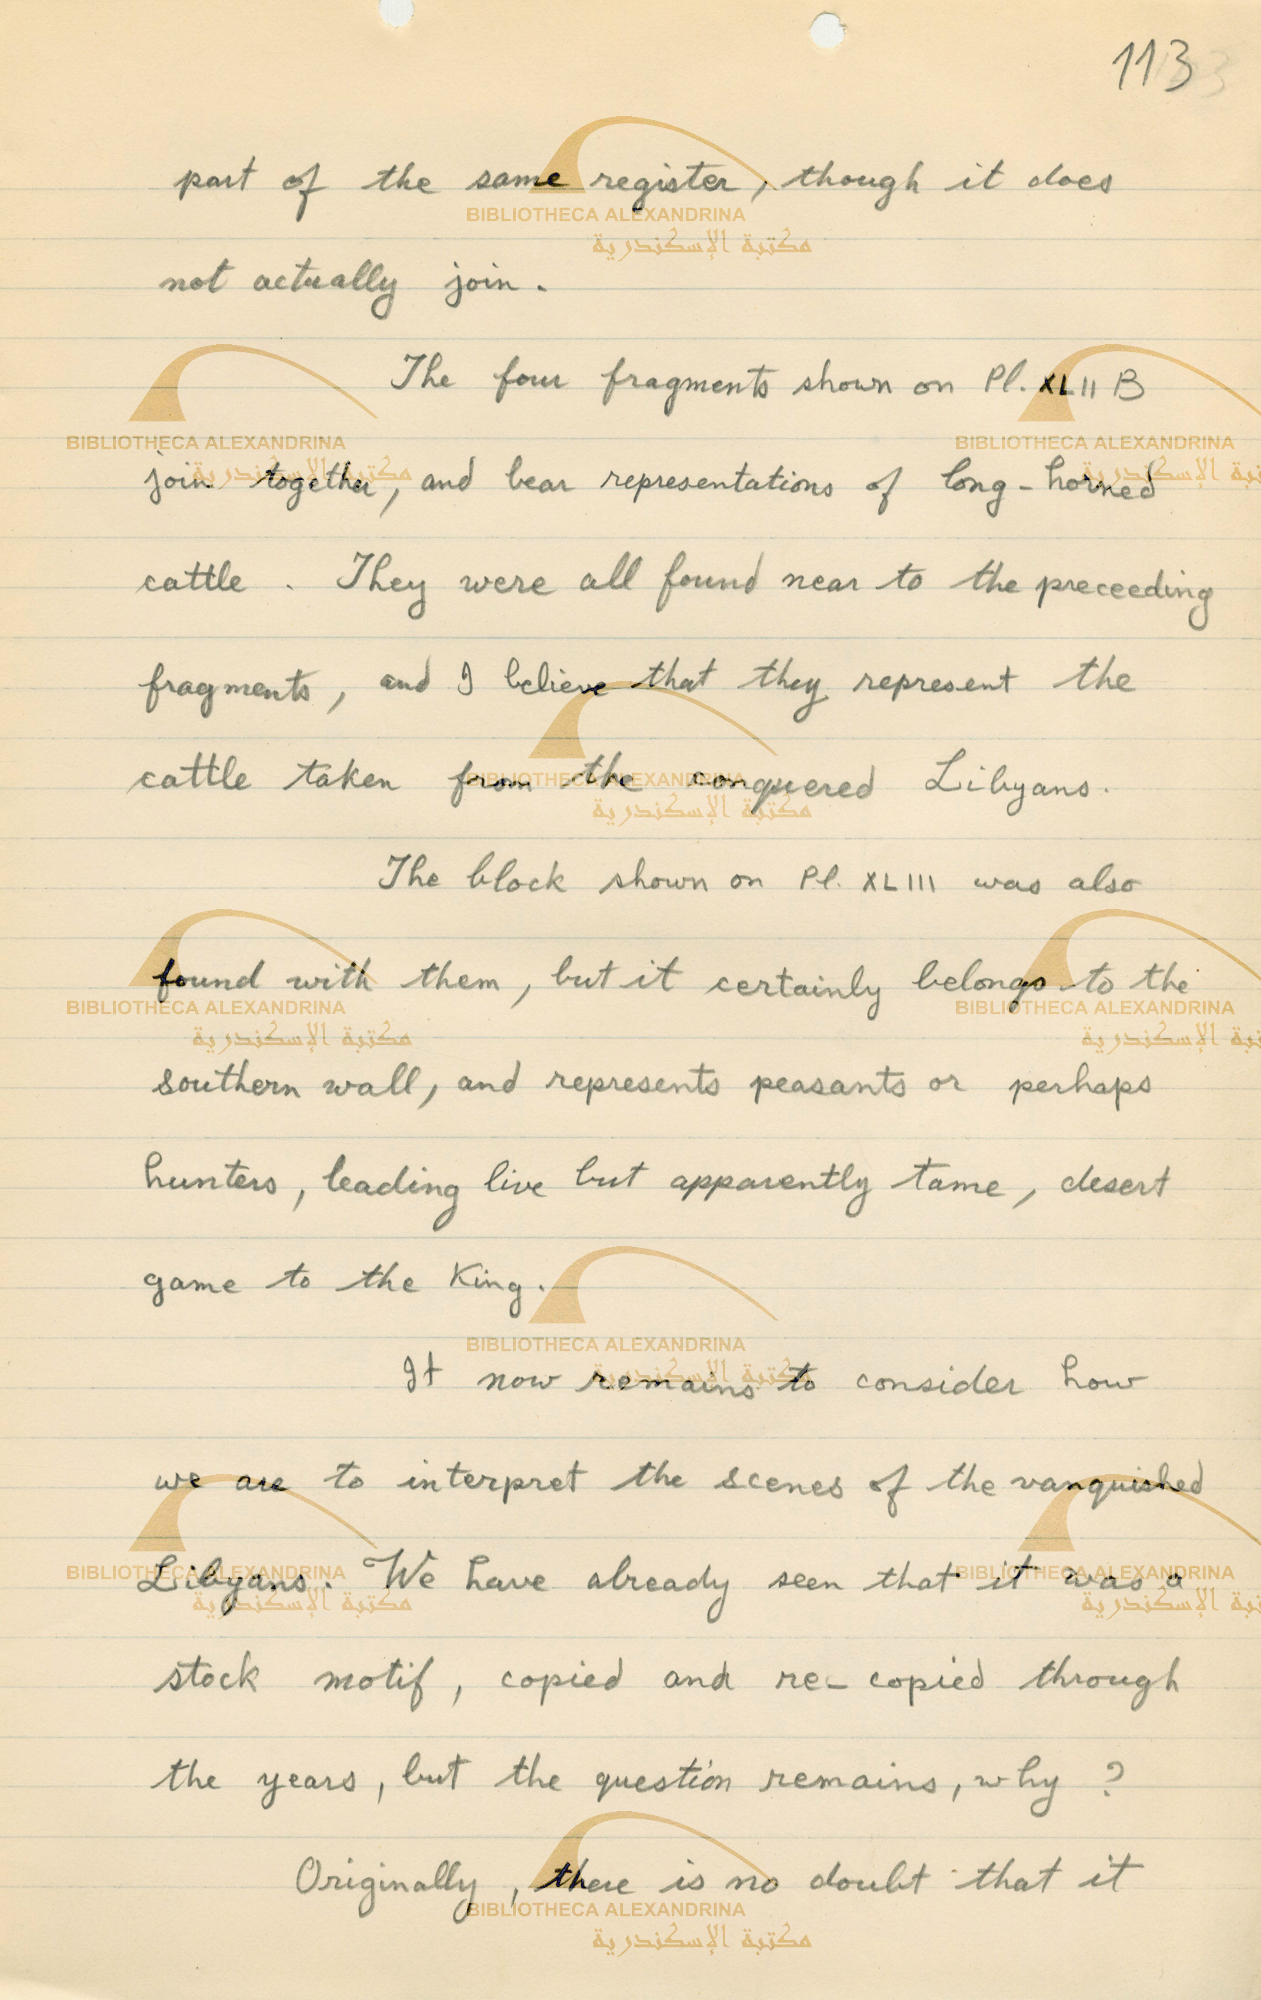 113
part of the same register, though it does
not actually join.
The four fragments shown on Pl. XLII B
join together, and bear representations of long-horned
cattle. They were all found near to the preceeding
fragments, and I believe that they represent the
cattle taken from the conquered Libyans.
The block shown on Pl. XLIII was also
found with them, but it certainly belongs to the
southern wall, and represents peasants or perhaps
hunters, leading live but apparently tame, desert
game to the King.
It now remains to consider how
we are to interpret the scenes of the vanquished
Libyans. We have already seen that it was a
stock motif, copied and re-copied through
the years, but the question remains, why?
Originally, there is no doubt that it
BIBLIOTHECA ALEXANDRINA
مكتبة الإسكندرية